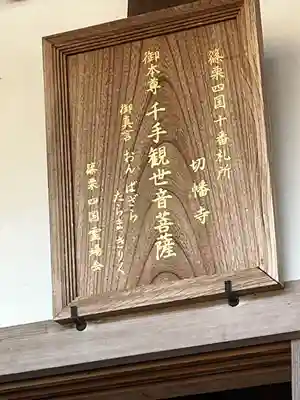 篠栗四国十番札所
切幡寺
御本尊 千手観世音菩薩
御真言 おん ばざら
たらま きりく
篠栗 四国霊場会